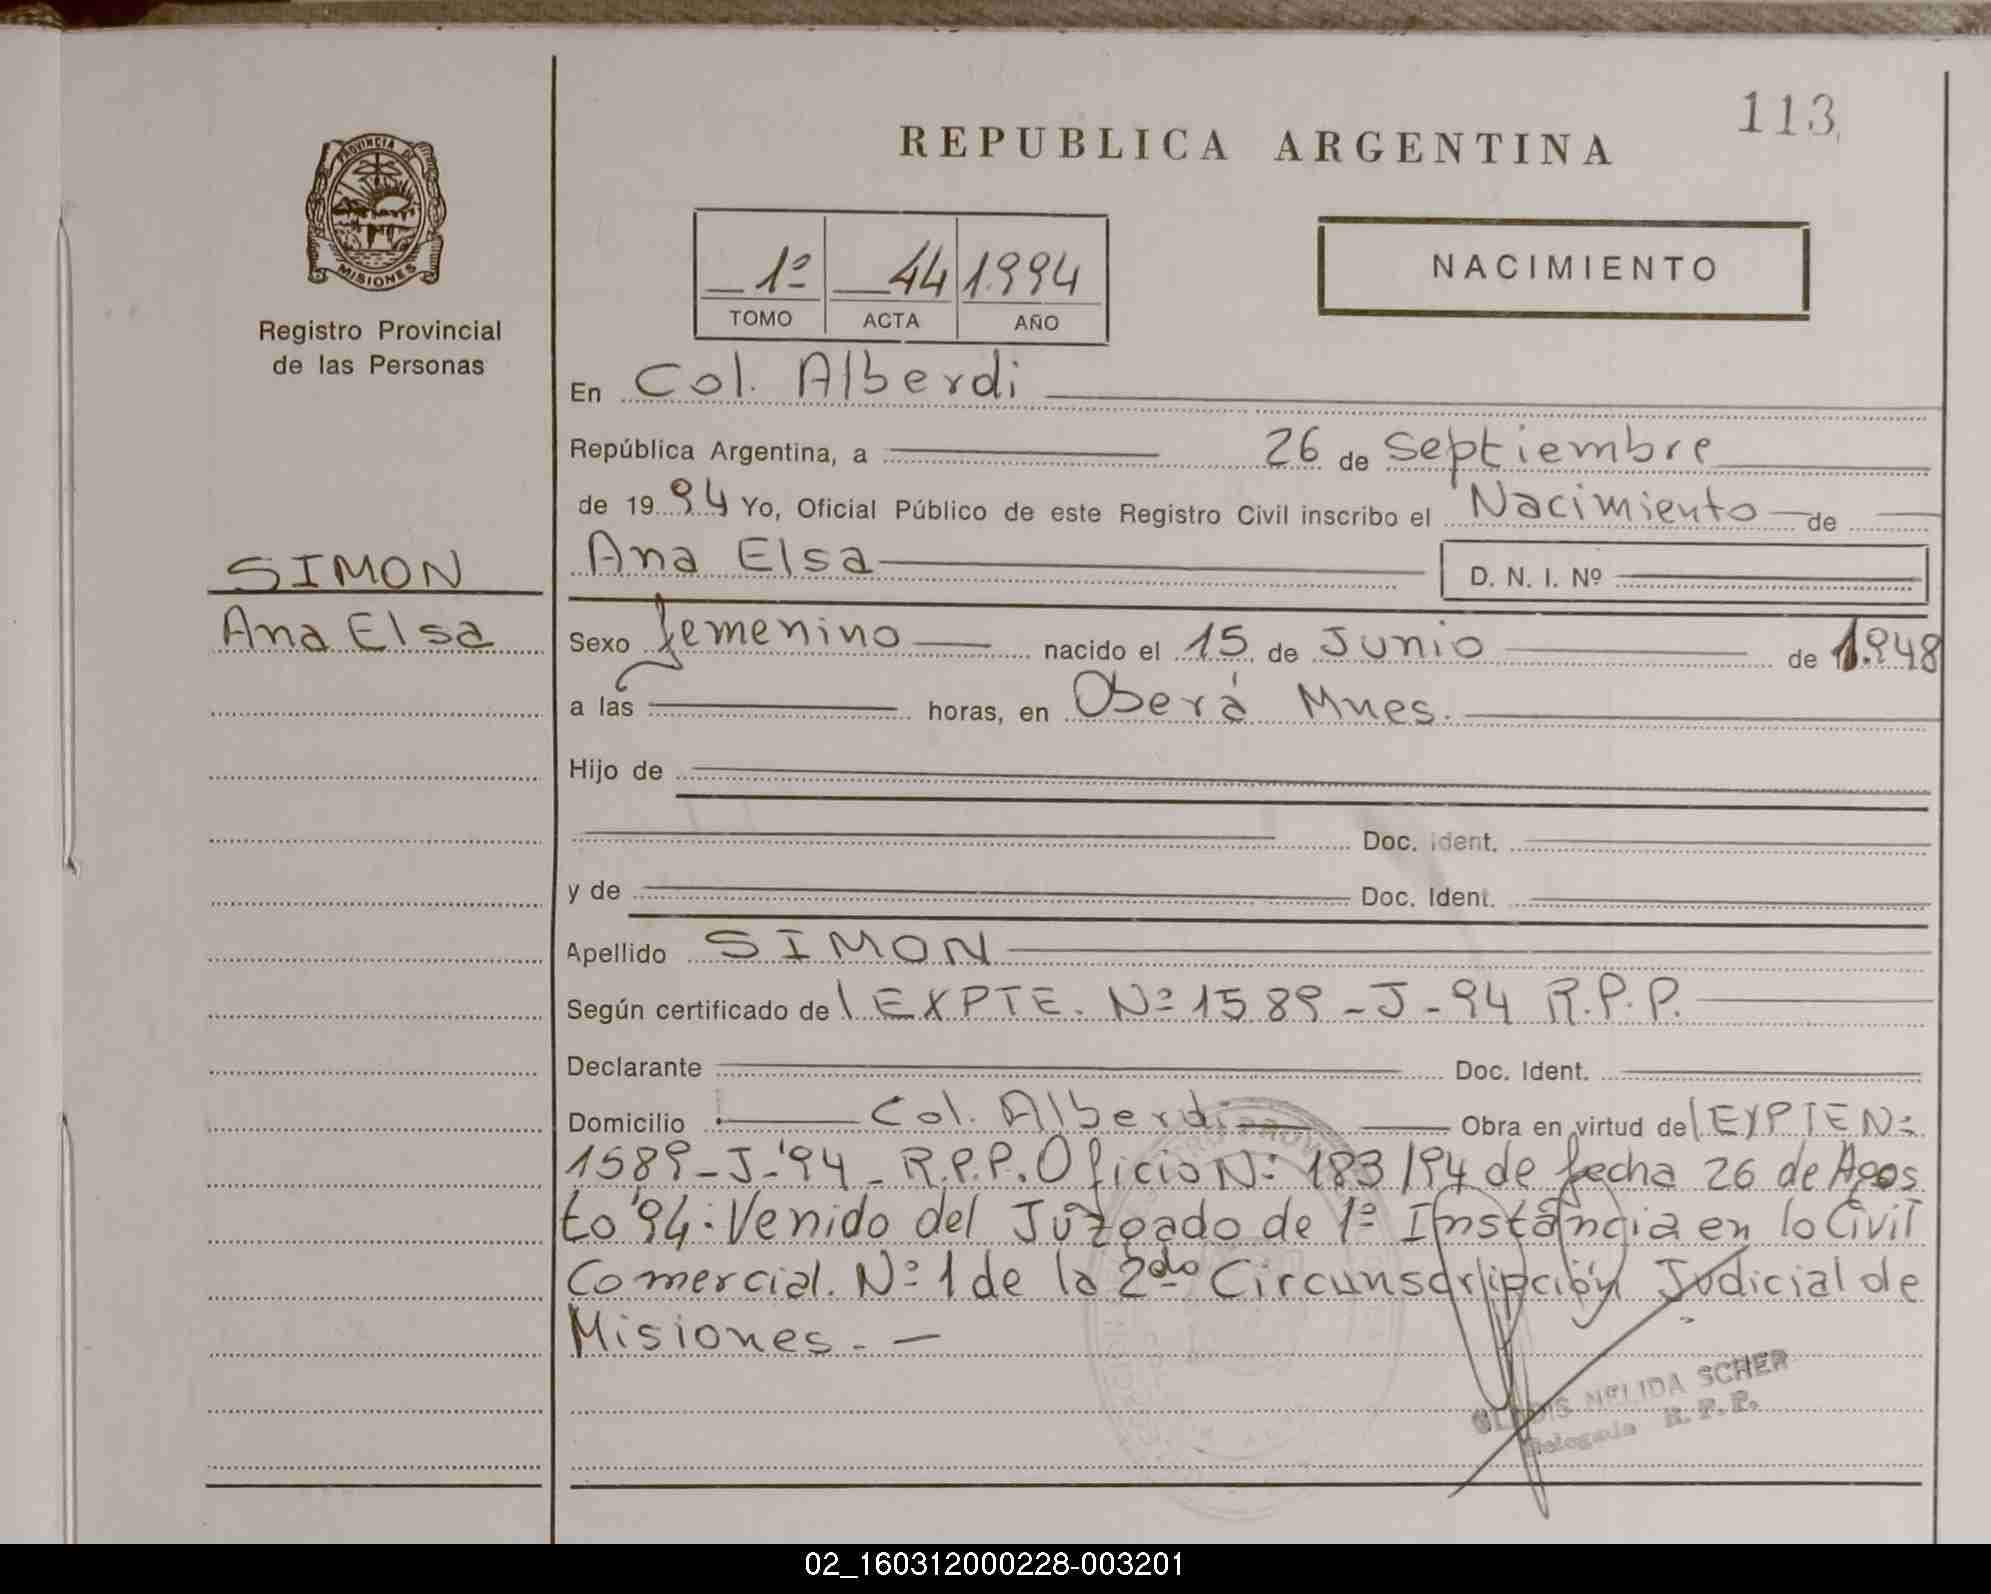 113
REPUBLICA ARGENTINA
PROVINCIA DE
MISIONES
Registro Provincial
de las Personas
1º 44 1994
TOMO ACTA AÑO
NACIMIENTO
En Col. Alberdi
República Argentina, a 26 de Septiembre
de 1994 Yo, Oficial Público de este Registro Civil inscribo el Nacimiento de
SIMON
Ana Elsa
Ana Elsa D. N. I. Nº
Sexo femenino nacido el 15 de Junio de 1.948
a las horas, en Oberá Mnes.
Hijo de
Doc. Ident.
y de Doc. Ident.
Apellido SIMON
Según certificado de l EXPTE. Nº 1589-J-94 R.P.P.
Declarante Doc. Ident.
Domicilio Col. Alberdi Obra en virtud del EXPTE Nº
1589-J-'94 - R.P.P. Oficio Nº 183/94 de fecha 26 de Agos
to '94. Venido del Juzgado de 1º Instancia en lo Civil
Comercial. Nº 1 de la 2do Circunscripción Judicial de
Misiones. -
GLADIS NELIDA SCHER
Delegada R. P. P.
02_160312000228-003201